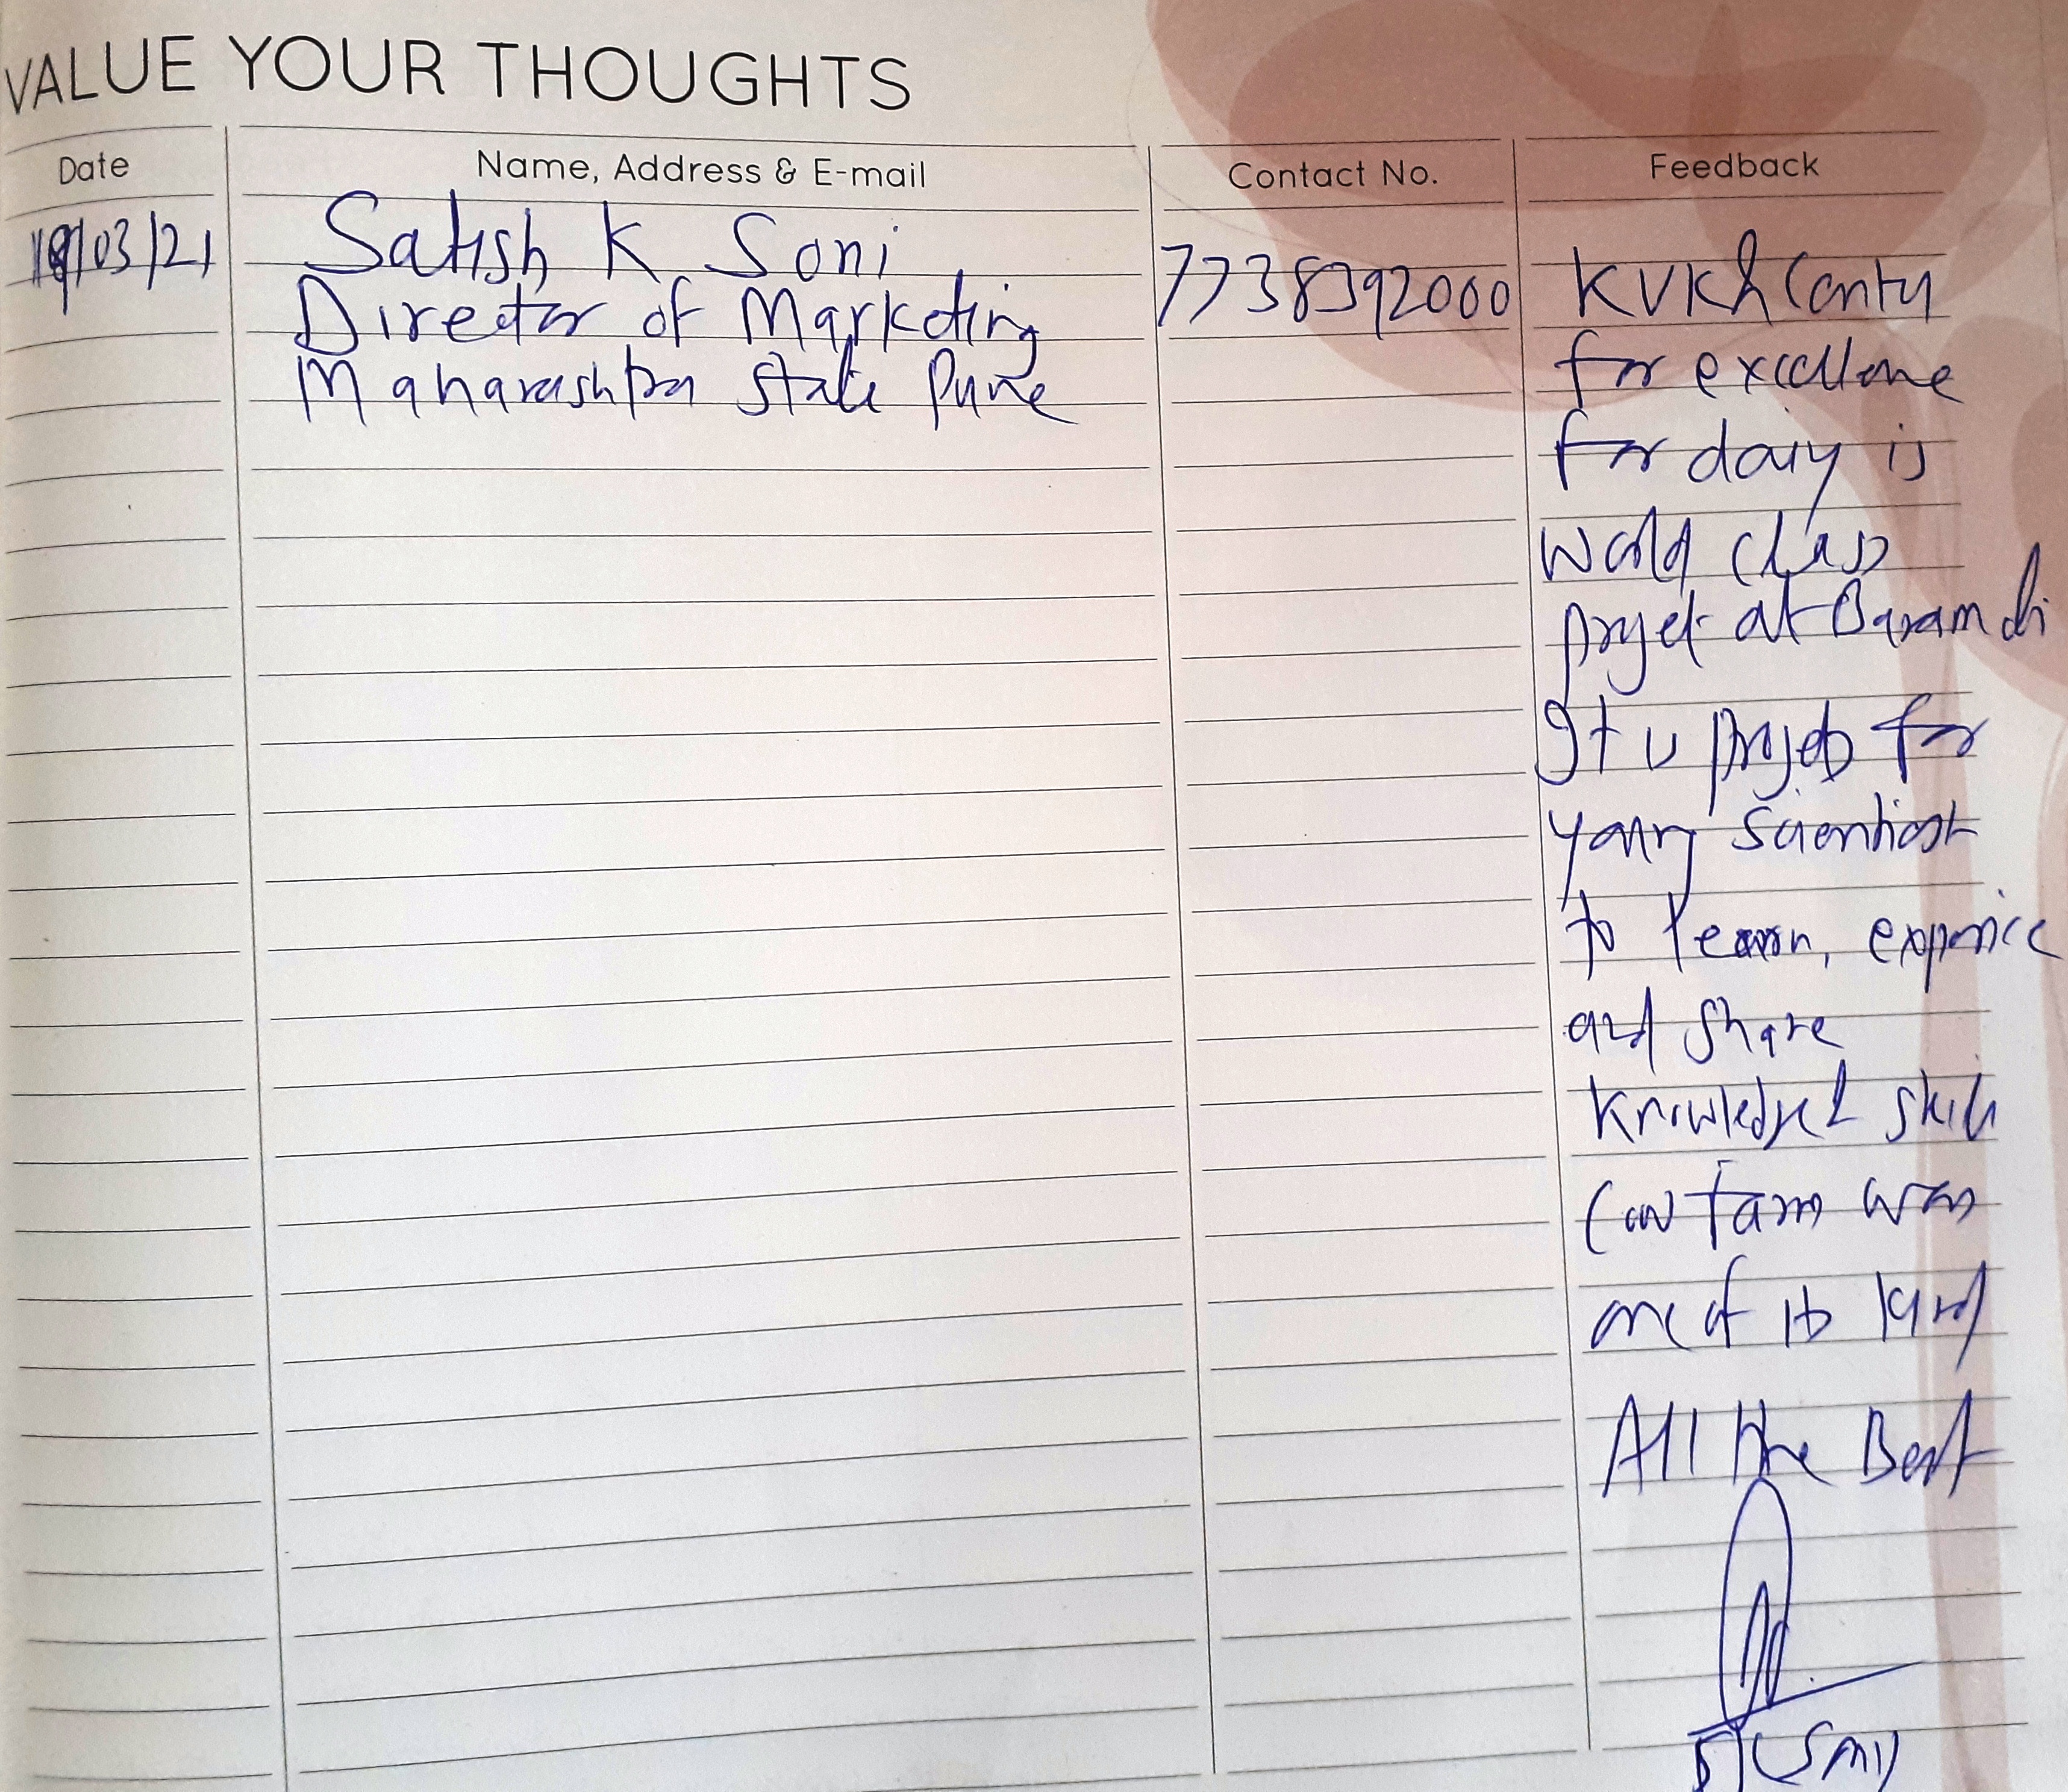 VALUE YOUR THOUGHTS
Date Name, Address & E-mail Contact No. Feedback
19/03/21 Satish K Soni 7738392000 KVK & Centre
Director of Marketing for excellence
Maharashtra State Pune for dairy is
World class
project at Baramati
It is project for
young Scientist
to learn, experience
and share
knowledge & skill
Cow farm was
one of its kind
All the Best